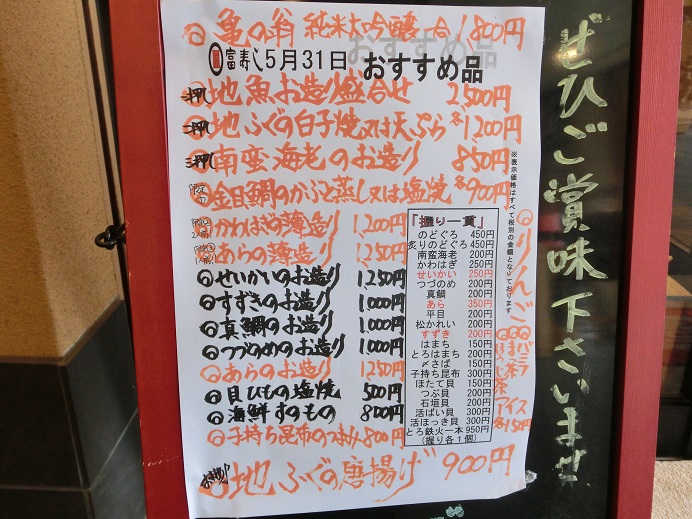 ◎亀の翁 純米大吟醸 一合 1,800円
富寿し 5月31日 おすすめ品
一押し 地魚お造り盛合せ 2,500円
二押し 地ふぐの白子焼又は天ぷら 各1,200円
三押し 南蛮海老のお造り 850円
金目鯛のかぶと蒸し又は塩焼 各900円
かわはぎの薄造り 1,200円
あらの薄造り 1,250円
◎せいかいのお造り 1,250円
◎すずきのお造り 1,000円
◎真鯛のお造り 1,000円
◎つづのめのお造り 1,000円
◎あらのお造り 1,250円
◎貝ひもの塩焼 500円
◎海鮮すのもの 800円
◎子持ち昆布のつまみ 800円
◎地ふぐの唐揚げ 900円
『握り一貫』
のどぐろ 450円
炙りのどぐろ 450円
南蛮海老 200円
かわはぎ 250円
せいかい 250円
つづのめ 200円
真鯛 200円
あら 350円
平目 200円
松かれい 200円
すずき 200円
はまち 150円
とろはまち 200円
〆さば 150円
子持ち昆布 300円
ほたて貝 150円
つぶ貝 200円
石垣貝 200円
活ばい貝 300円
活ほっき貝 300円
とろ鉄火一本 950円
(握り各1個)
※表示価格はすべて税別の金額となっております
◎りんご
◎バニラ
◎抹茶
◎ほうじ茶
アイス
各150円
ぜひご賞味下さいませ